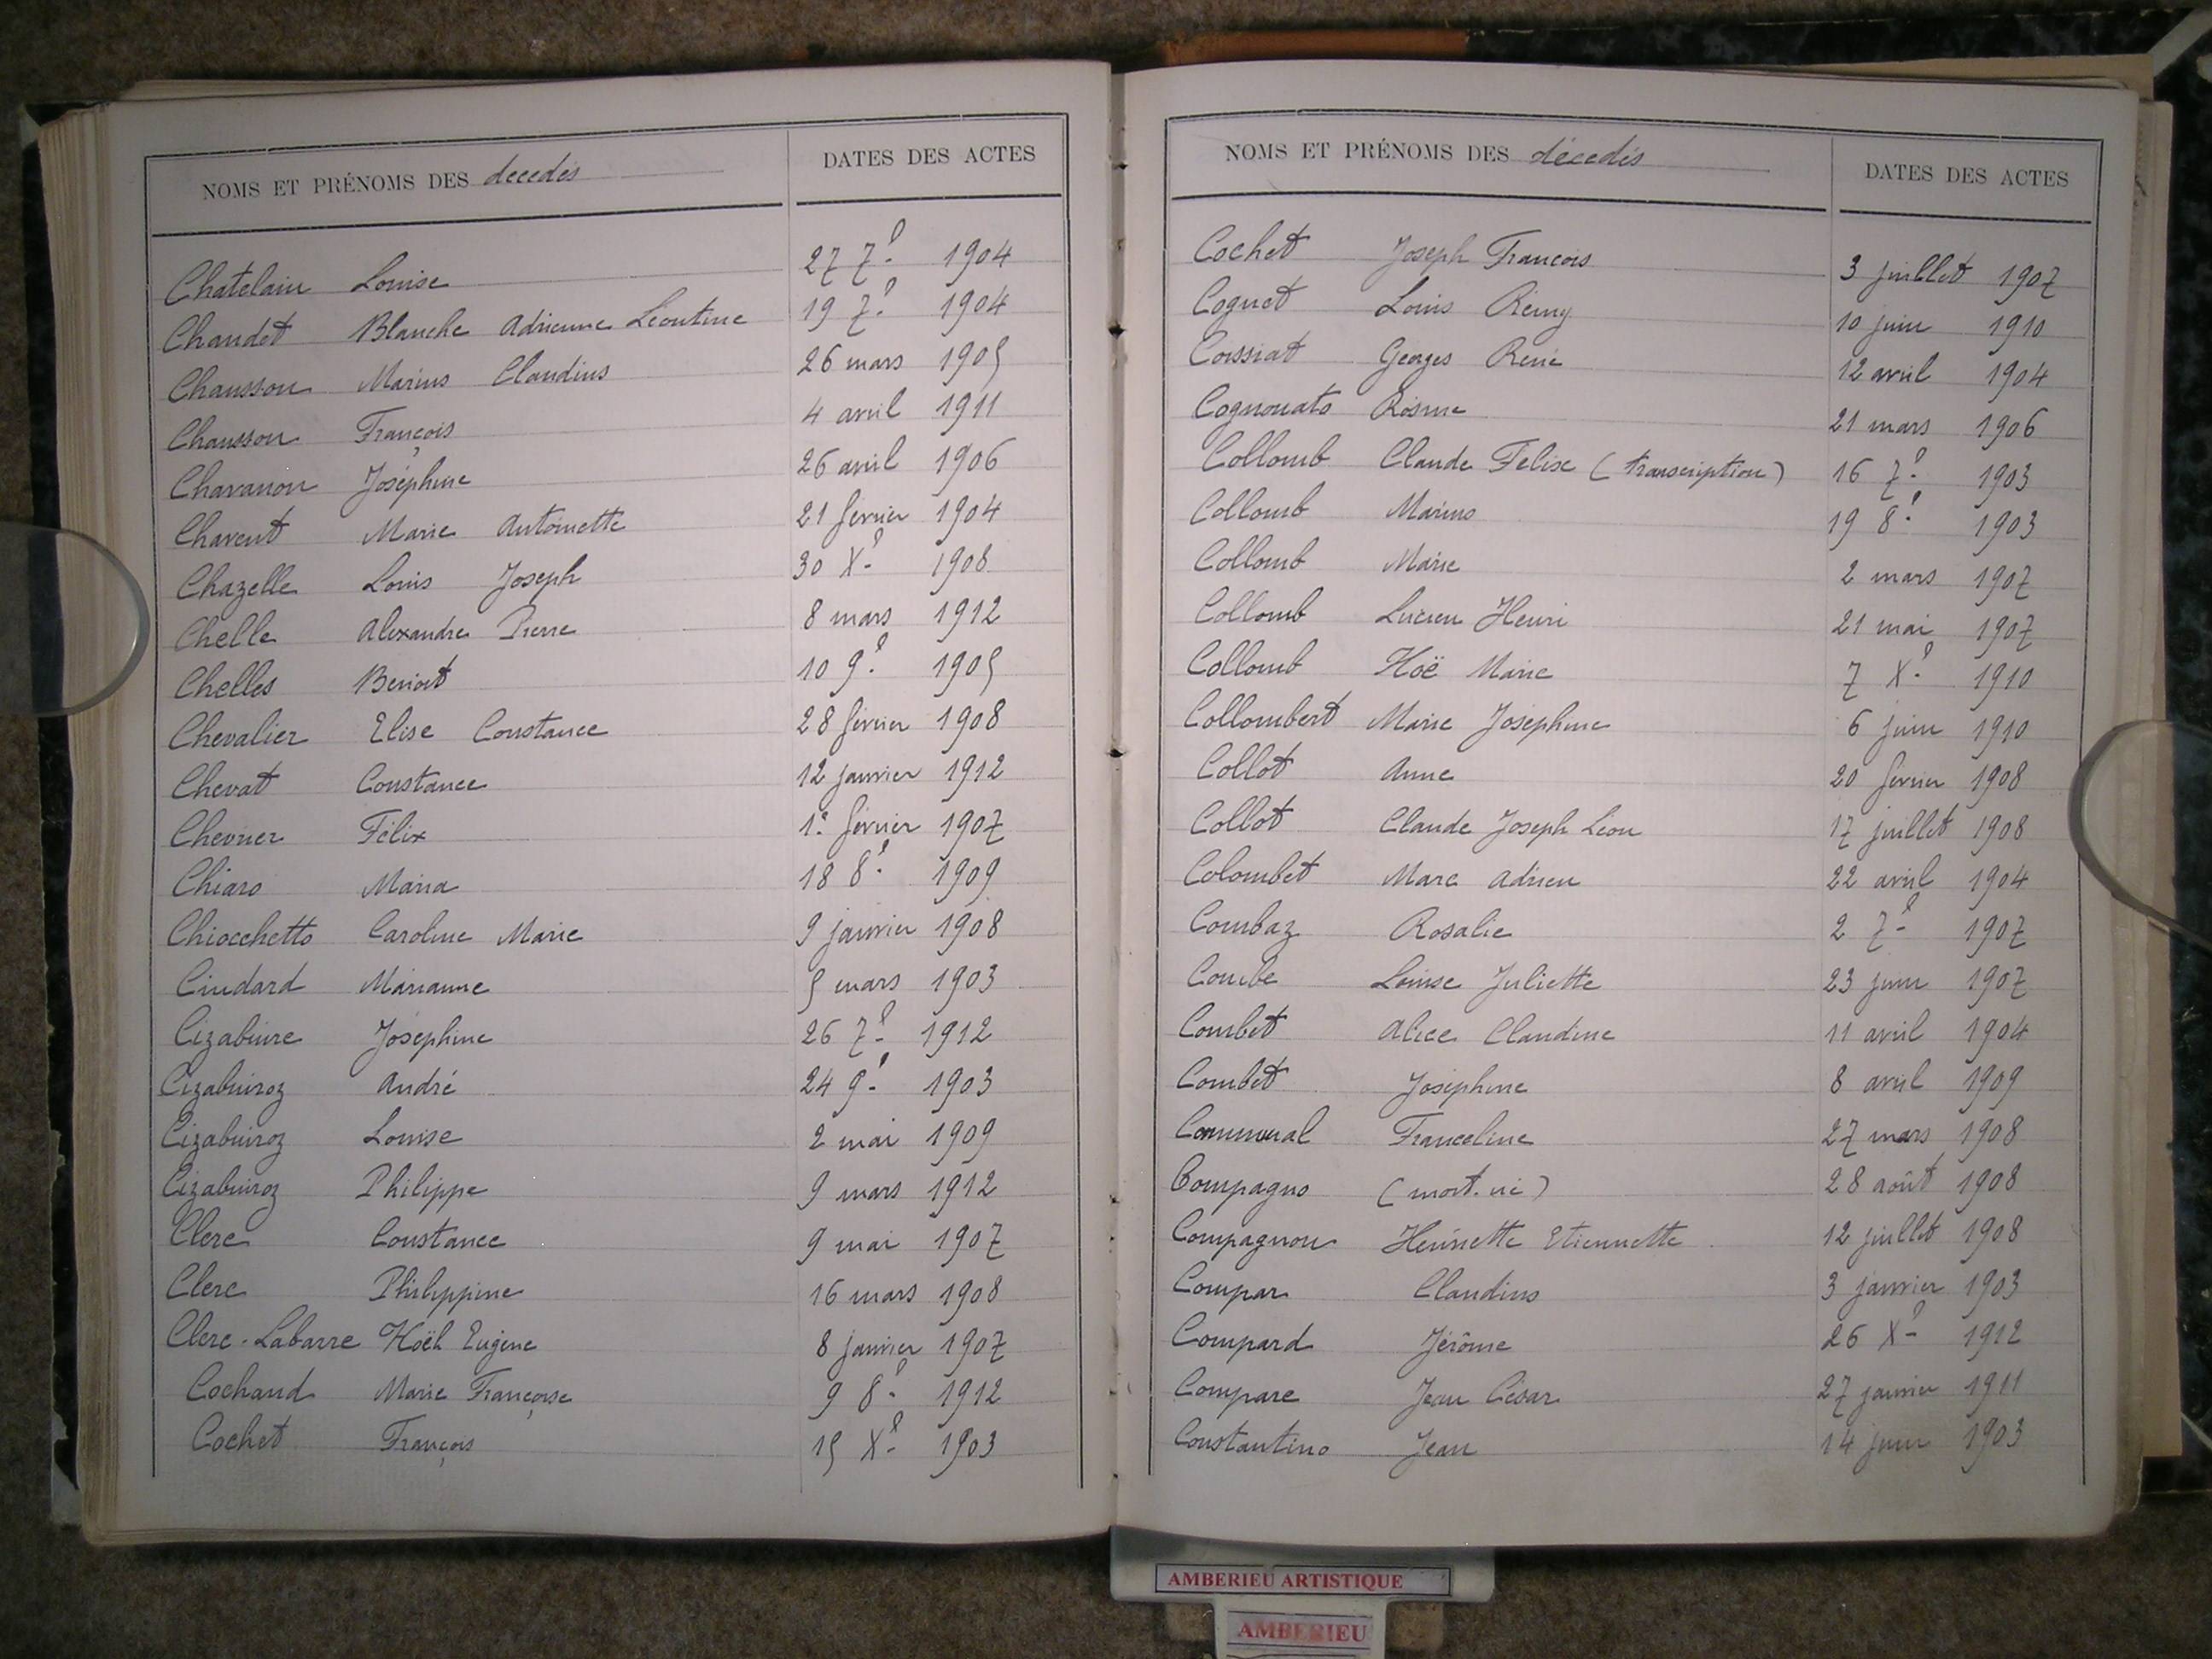 NOMS ET PRÉNOMS DES décedés DATES DES ACTES
Chatelain Louise 27 7e 1904
Chaudet Blanche Adrienne Léontine 19 7e 1904
Chausson Marius Claudius 26 mars 1905
Chausson François 4 avril 1911
Chavanon Joséphine 26 avril 1906
Chavent Marie Antoinette 21 février 1904
Chazelle Louis Joseph 30 Xe 1908
Chelle Alexandre Pierre 8 mars 1912
Chelles Benoit 10 9e 1905
Chevalier Elise Constance 28 février 1908
Chevat Constance 12 janvier 1912
Chevrier Félix 1er février 1907
Chiaro Maria 18 8e 1909
Chiocchetto Caroline Marie 9 janvier 1908
Cindard Marianne 5 mars 1903
Cizabuire Joséphine 26 7e 1912
Cizabuiroz André 24 9e 1903
Cizabuiroz Louise 2 mai 1909
Cizabuiroz Philippe 9 mars 1912
Clerc Constance 9 mai 1907
Clerc Philippine 16 mars 1908
Clerc-Labarre Noël Eugène 8 janvier 1907
Cochaud Marie Françoise 9 8e 1912
Cochet François 15 Xe 1903
NOMS ET PRÉNOMS DES décedés DATES DES ACTES
Cochet Joseph François 3 juillet 1907
Cognet Louis Rémy 10 juin 1910
Coissiat Georges René 12 avril 1904
Cognonato Rosine 21 mars 1906
Collomb Claude Félix (transcription) 16 7e 1903
Collomb Marius 19 8e 1903
Collomb Marie 2 mars 1907
Collomb Lucien Henri 21 mai 1907
Collomb Noë Marie 7 Xe 1910
Collombert Marie Joséphine 6 juin 1910
Collot Anne 20 février 1908
Collot Claude Joseph Léon 17 juillet 1908
Colombet Marc Adrien 22 avril 1904
Combaz Rosalie 2 7e 1907
Combe Louise Juliette 23 juin 1907
Combet Alice Claudine 11 avril 1904
Combet Joséphine 8 avril 1909
Communal Franceline 27 mars 1908
Compagno (mort-né) 28 août 1908
Compagnon Henriette Etiennette 12 juillet 1908
Compar Claudius 3 janvier 1903
Compard Jérôme 26 Xe 1912
Compare Jean César 27 janvier 1911
Constantino Jean 14 juin 1903
AMBERIEU ARTISTIQUE
AMBERIEU